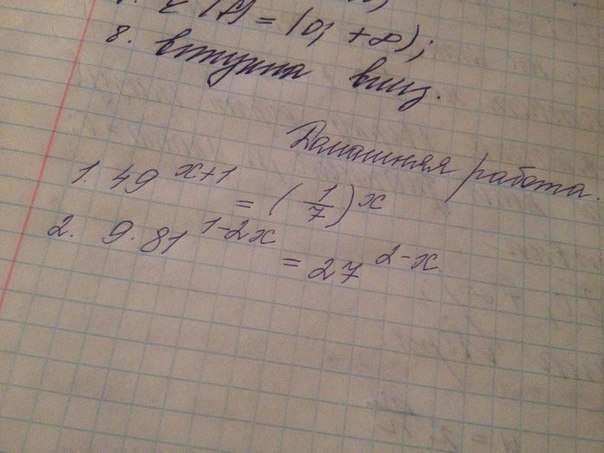 E(f) = (0; +∞);
8. выпукла вниз.
Домашняя работа.
1. 49^(x+1) = (1/7)^x
2. 9·81^(1-2x) = 27^(2-x)